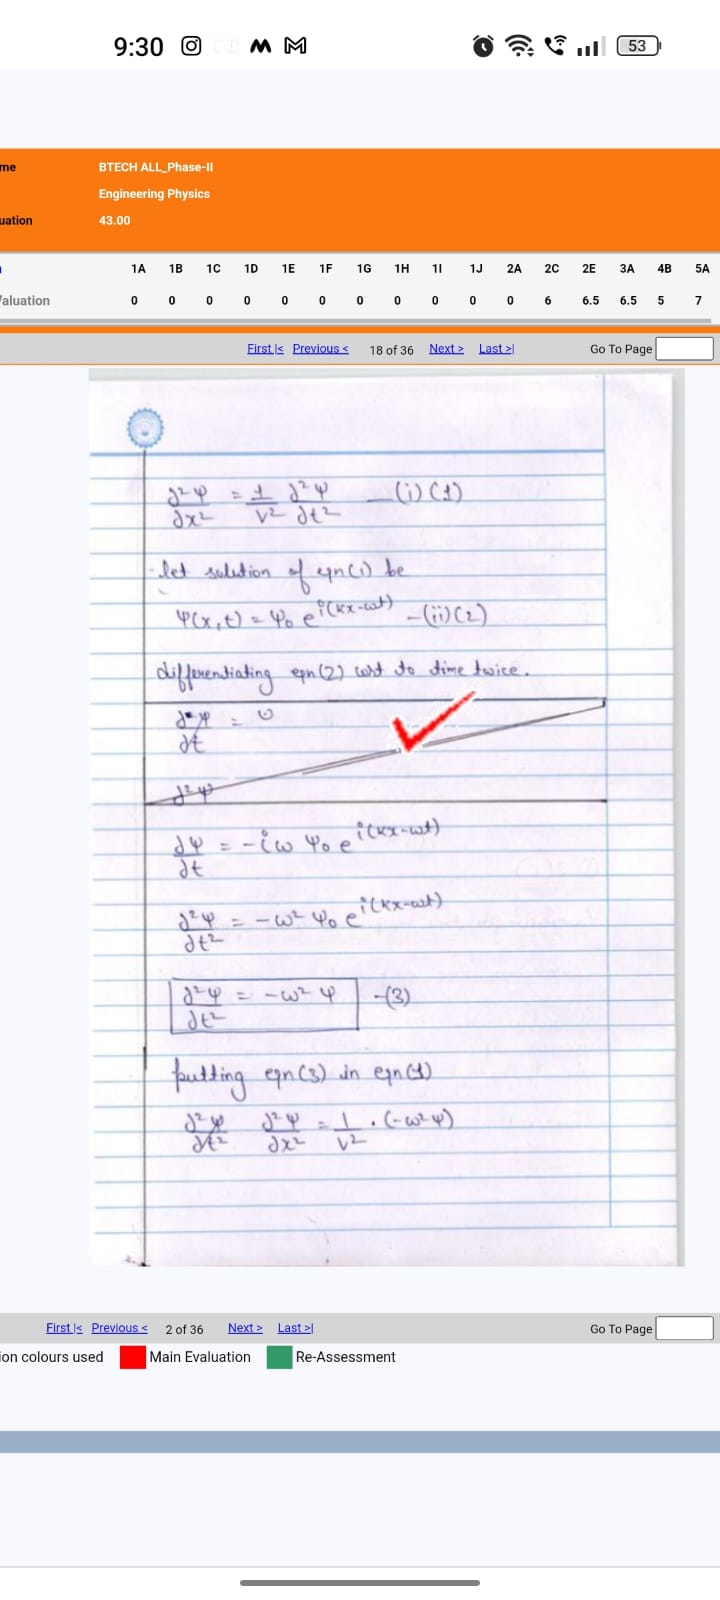 9:30
53
me BTECH ALL_Phase-II
Engineering Physics
uation 43.00
1A 1B 1C 1D 1E 1F 1G 1H 1I 1J 2A 2C 2E 3A 4B 5A
/aluation 0 0 0 0 0 0 0 0 0 0 0 6 6.5 6.5 5 7
First |< Previous < 18 of 36 Next > Last >| Go To Page
∂²ψ/∂x² = 1/v² ∂²ψ/∂t² —(i) (1)
let solution of eqn(i) be
ψ(x,t) = ψ₀ e^i(kx-ωt) —(ii) (2)
differentiating eqn (2) wrt to time twice.
∂ψ/∂t =
∂²ψ
∂ψ/∂t = -iω ψ₀ e^i(kx-ωt)
∂²ψ/∂t² = -ω² ψ₀ e^i(kx-ωt)
∂²ψ/∂t² = -ω² ψ -(3)
putting eqn (3) in eqn (1)
∂²ψ/∂t² ∂²ψ/∂x² = 1/v² · (-ω²ψ)
First |< Previous < 2 of 36 Next > Last >| Go To Page
ion colours used Main Evaluation Re-Assessment